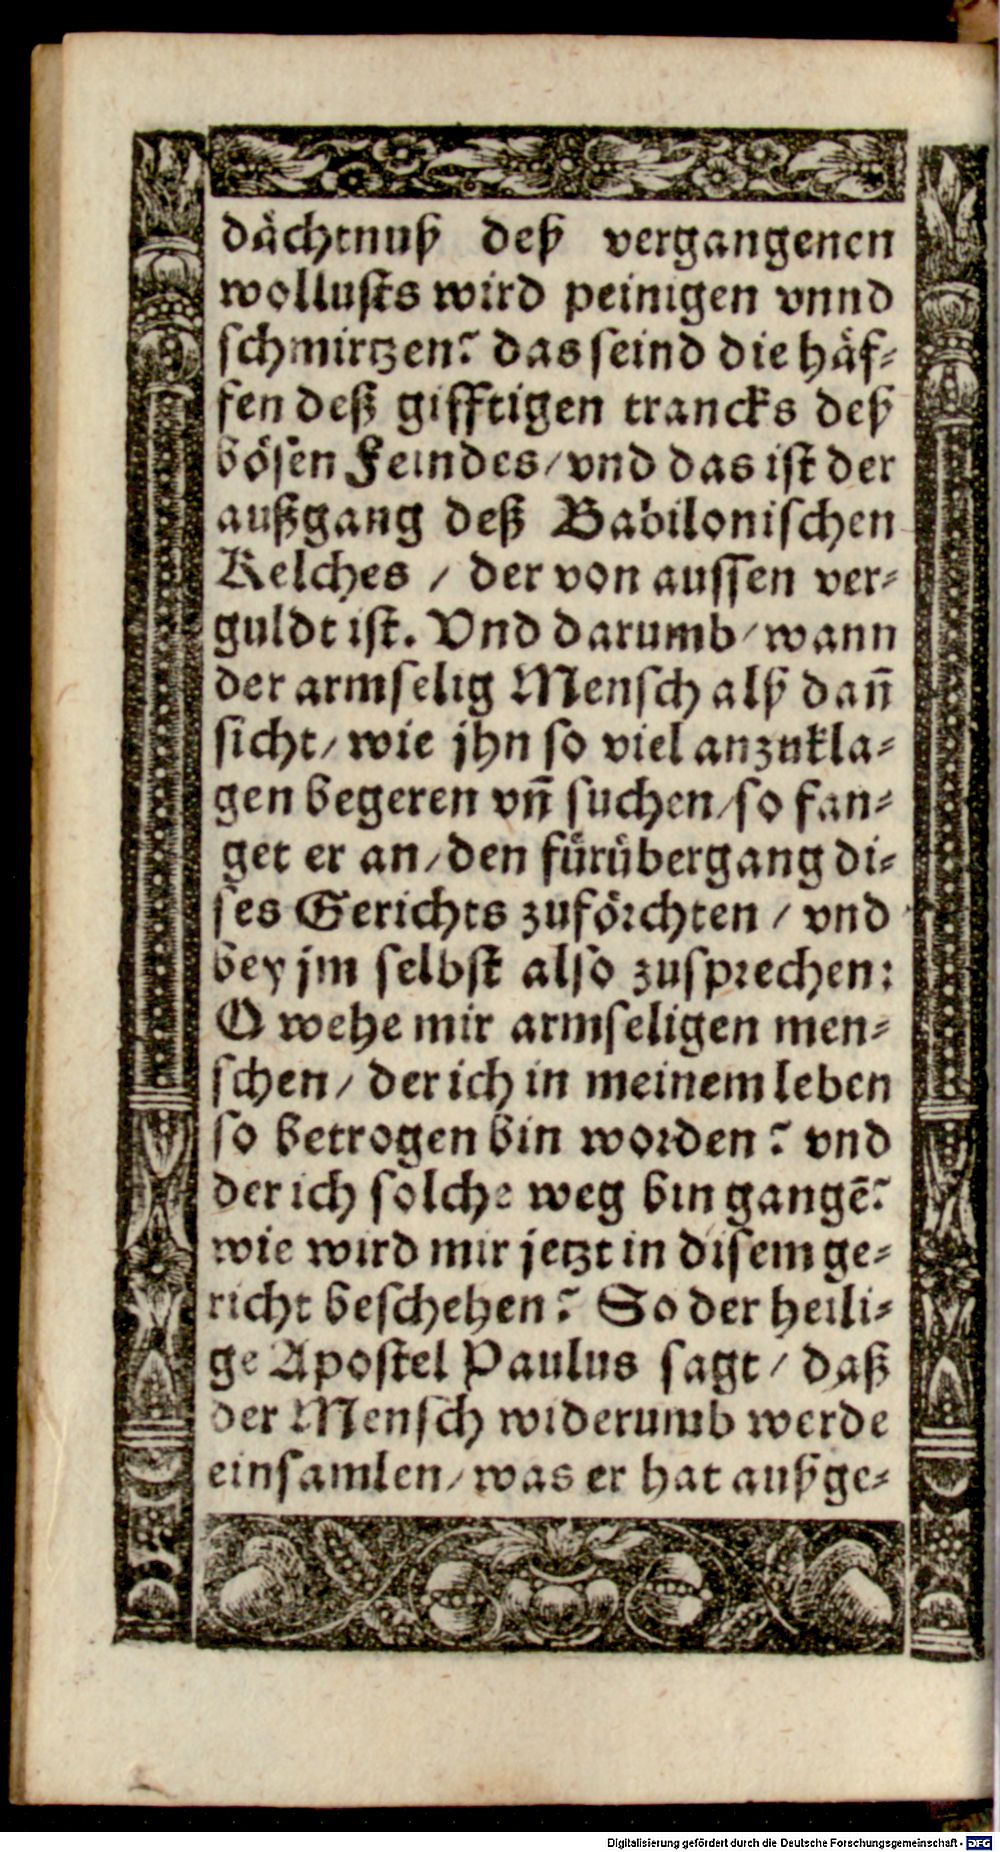 dächtnuß deß vergangenen
wollusts wird peinigen vnnd
schmirtzen? das seind die häf-
fen deß gifftigen trancks deß
bösen Feindes/ vnd das ist der
außgang deß Babilonischen
Kelches / der von aussen ver-
guldt ist. Vnd darumb/ wann
der armselig Mensch alß dañ
sicht/ wie jhn so viel anzukla-
gen begeren vñ suchen/ so fan-
get er an/ den fürübergang di-
ses Gerichts zuförchten / vnd
bey jm selbst also zusprechen:
O wehe mir armseligen men-
schen/ der ich in meinem leben
so betrogen bin worden? vnd
der ich solche weg bin gangẽ?
wie wird mir jetzt in disem ge-
richt beschehen? So der heili-
ge Apostel Paulus sagt/ daß
der Mensch widerumb werde
einsamlen/ was er hat außge-
Digitalisierung gefördert durch die Deutsche Forschungsgemeinschaft - DFG